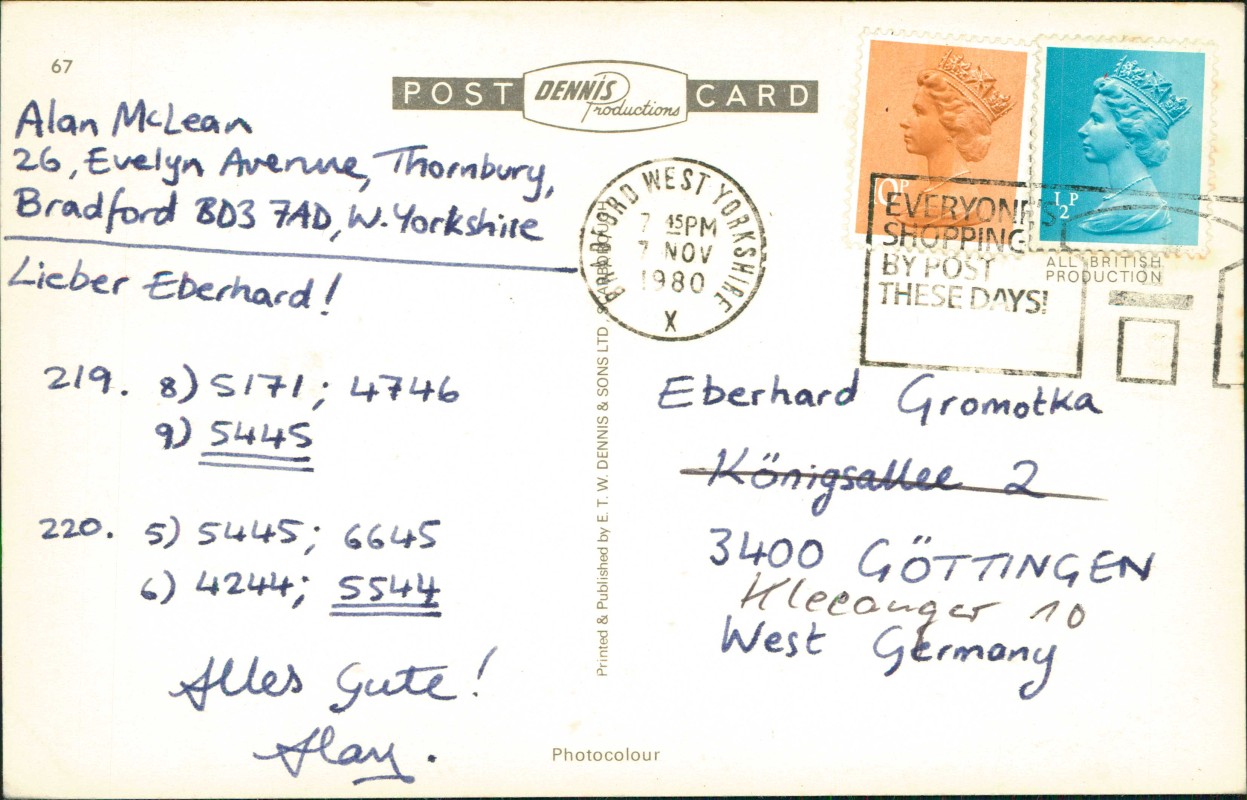 67
POST DENNIS Productions CARD
Alan McLean
26, Evelyn Avenue, Thornbury,
Bradford BD3 7AD, W. Yorkshire
Lieber Eberhard!
219. 8) 5171; 4746
9) 5445
220. 5) 5445; 6645
6) 4244; 5544
Alles Gute!
Alan.
Printed & Published by E. T. W. DENNIS & SONS LTD. SCARBOROUGH
BRADFORD WEST YORKSHIRE
7 45PM
7 NOV
1980
X
½P
EVERYONE'S
SHOPPING
BY POST
THESE DAYS!
ALL BRITISH
PRODUCTION
Eberhard Gromotka
Königsallee 2
3400 GÖTTINGEN
Kleeanger 10
West Germany
Photocolour